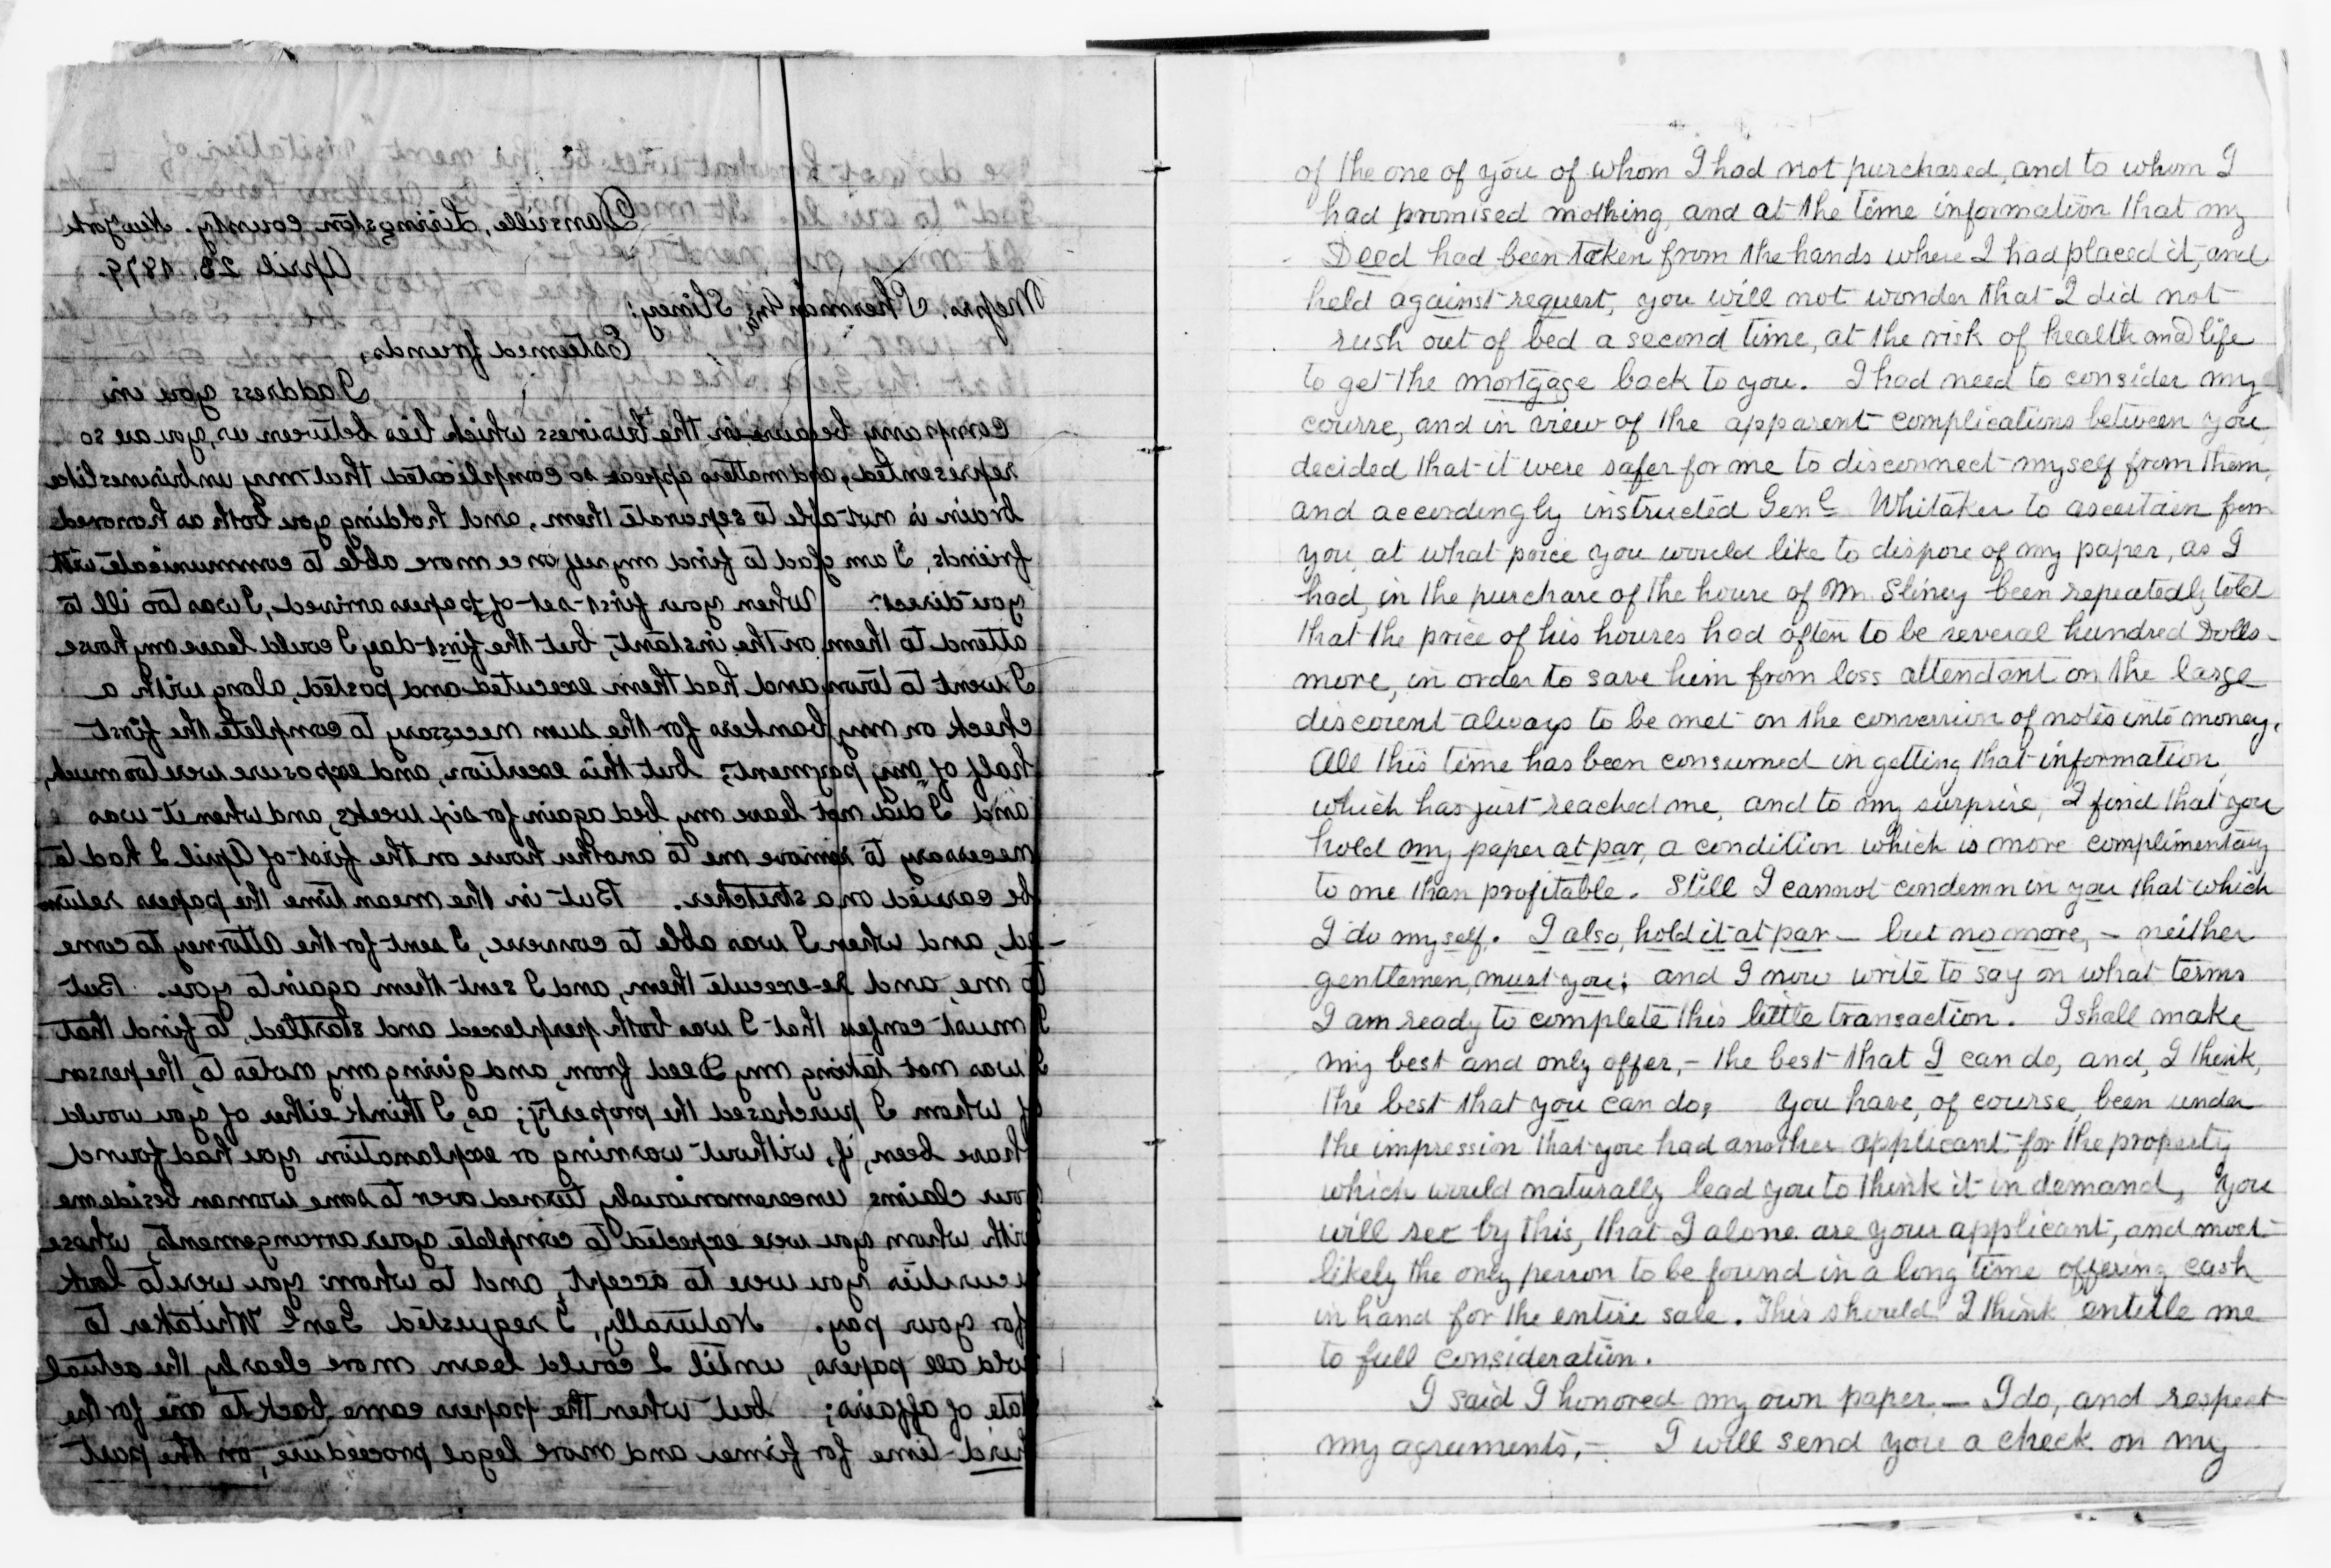 Dansville, Livingston County. New York
April 23. 1879.
Messrs. Sherman & Sliney:
Esteemed friends,
I address you in
company because in the business which lies between us, you are so
represented, and matters appear so complicated that my unbusinesslike
brain is not able to separate them, and holding you both as honored
friends, I am glad to find myself once more able to communicate with
you direct. When your first set of papers arrived, I was too ill to
attend to them on the instant, but the first day I could leave my house
I went to town and had them executed and posted, along with a
check on my bankers for the sum necessary to complete the first
half of my payment; but this exertion, and exposure were too much,
and I did not leave my bed again for six weeks, and when it was
necessary to remove me to another house on the first of April I had to
be carried on a stretcher. But in the mean time the papers return
ed, and when I was able to converse, I sent for the attorney to come
to me, and re-execute them, and I sent them again to you. But
I must confess that I was both perplexed and startled, to find that
I was not taking my Deed from, and giving my notes to, the person
of whom I purchased the property; as, I think either of you would
have been, if, without warning or explanation you had found
your claims unceremoniously turned over to some woman beside me
with whom you were expected to complete your arrangements, whose
securities you were to accept, and to whom you were to look
for your pay. Naturally, I requested Genl Whitaker to
hold all papers, until I could learn more clearly the actual
state of affairs; but when the papers came back to me for the
third time for firmer and more legal proceedure, on the part
of the one of you of whom I had not purchased, and to whom I
had promised nothing, and at the time information that my
Deed had been taken from the hands where I had placed it, and
held against request, you will not wonder that I did not
rush out of bed a second time, at the risk of health and life
to get the mortgage back to you. I had need to consider my
course, and in view of the apparent complications between you,
decided that it were safer for me to disconnect myself from them,
and accordingly instructed Genl Whitaker to ascertain from
you, at what price you would like to dispose of my paper, as I
had, in the purchase of the house of Mr. Sliney been repeatedly told
that the price of his houses had often to be several hundred Dolls.
more, in order to save him from loss attendant on the large
discount always to be met on the conversion of notes into money.
All this time has been consumed in getting that information,
which has just reached me, and to my surprise, I find that you
hold my paper at par, a condition which is more complimentary
to one than profitable. Still I cannot condemn in you that which
I do myself. I also, hold it at par — but no more, — neither
gentlemen, must you; and I now write to say on what terms
I am ready to complete this little transaction. I shall make
my best and only offer, — the best that I can do, and, I think,
the best that you can do, You have, of course, been under
the impression that you had another applicant for the property
which would naturally lead you to think it in demand, You
will see by this, that I alone are your applicant, and most
likely the only person to be found in a long time offering cash
in hand for the entire sale. This should I think entitle me
to full consideration.
I said I honored my own paper — I do, and respect
my agreements, — I will send you a check on my